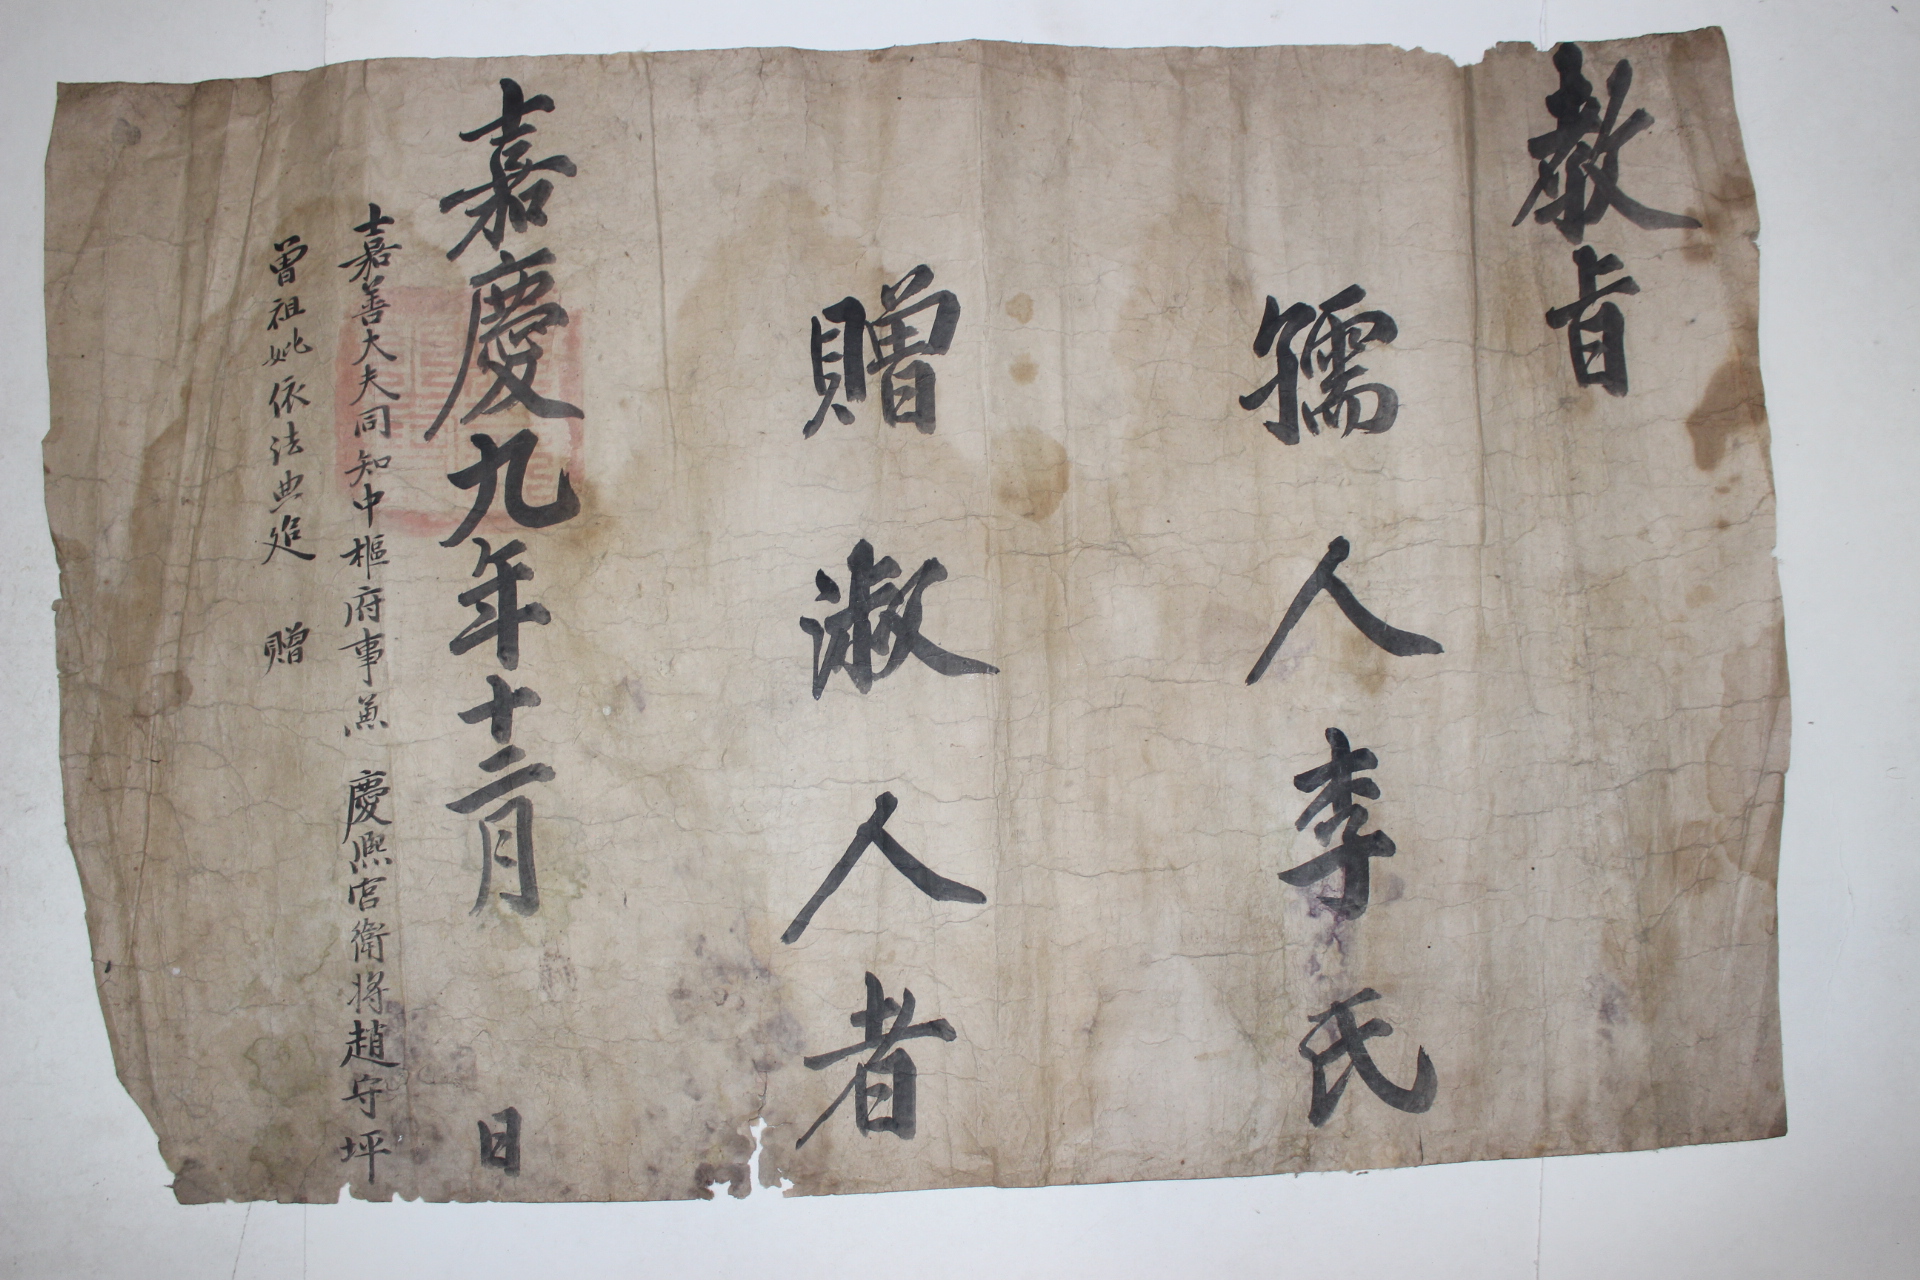 敎旨
孺人李氏
贈淑人者
嘉慶九年十二月 日
嘉善大夫同知中樞府事兼 慶熙宮衛將趙守坪
曾祖妣依法典追 贈